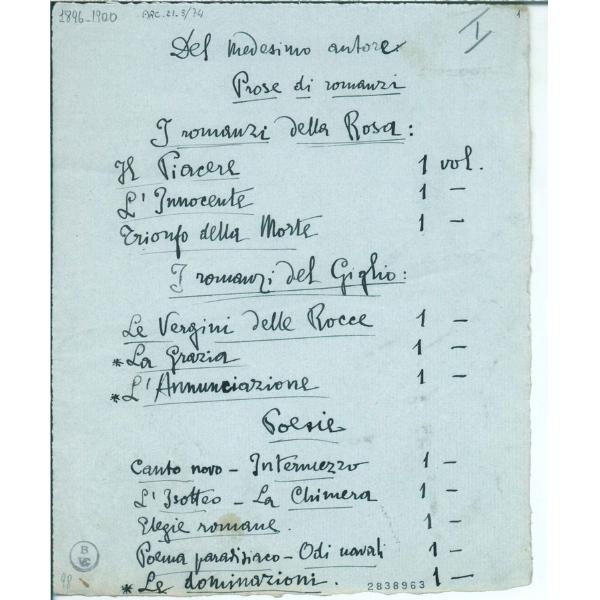 1896-1900 ARC.21.3/74 1
I
Del medesimo autore
Prose di romanzi
I romanzi della Rosa:
Il Piacere 1 vol.
L'Innocente 1 —
Trionfo della Morte 1 —
I romanzi del Giglio:
Le Vergini delle Rocce 1 —
*La Grazia 1 —
*L'Annunciazione 1 —
Poesie
Canto novo - Intermezzo 1 —
L'Isotteo - La Chimera 1 —
Elegie romane.
Poema paradisiaco - Odi navali 1 —
*Le dominazioni. 1 —
98 2838963